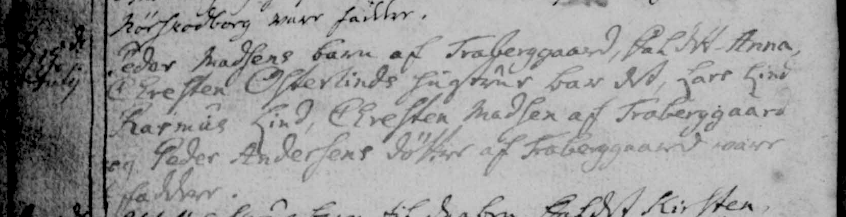 warr fadder.
d
Julij
Peder Madsens barn af Traberggaard, kaldet Anna,
Chresten Østerlinds hustrue bar det, Lars Lind
Rasmus Lind, Chresten Madsen af Traberggaard
og Peder Andersens dötter af Traberggaard warr
faddere.
kaldet Kirsten,